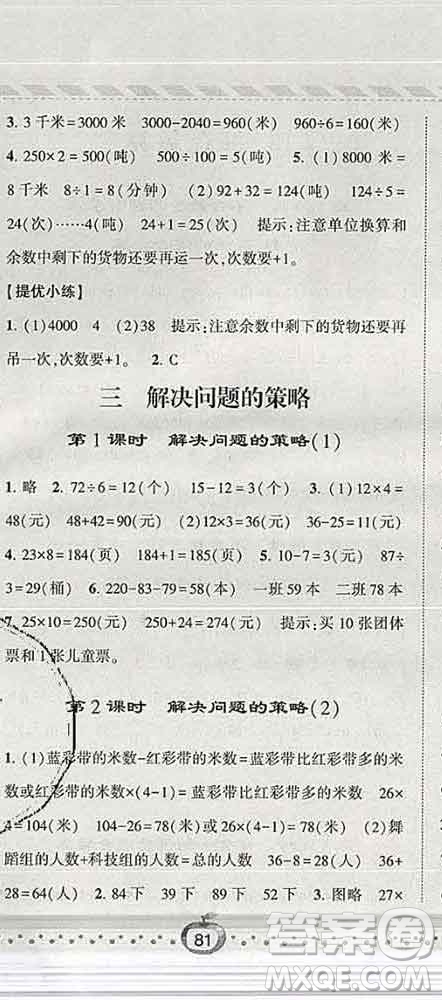 3. 3千米=3000 米　3000-2040=960(米)　960÷6=160(米)
4. 250×2=500(吨)　400+500=900(吨)　5. (1)8000 米=
8千米　8÷1=8(分钟)　(2)92+32=124(吨)　124÷5=
24(次)……4(吨)　24+1=25(次)　提示:注意单位换算和
余数中剩下的货物还要再运一次,次数要+1。
[提优小练]
1. (1)4000　4　(2)38　提示:注意余数中剩下的货物还要再
吊一次,次数要+1。　2. C
三　解决问题的策略
第 1 课时　解决问题的策略(1)
1. 略　2. 72÷6=12(个)　15-12=3(个)　3. (1)12×4=
48(元)　48+42=90(元)　(2)12×3=36(元)　36-25=11(元)
4. 23×8=184(页)　184+1=185(页)　5. 10-7=3(桶)　87÷
3=29(桶)　6. 220-83-79=58(本)　一班 59 本　二班 78 本
7. 25×10=250(元)　250+24=274(元)　提示:买 10 张团体
票和 1 张儿童票。
第 2 课时　解决问题的策略(2)
1. (1)蓝彩带的米数-红彩带的米数=蓝彩带比红彩带多的米
数或红彩带的米数×(4-1)=蓝彩带比红彩带多的米数　26×
4=104(米)　104-26=78(米)或26×(4-1)=78(米)　(2)舞
蹈组的人数+科技组的人数=总的人数　36-8=28(人)　36+
28=64(人)　2. 84 下　39 下　89 下　3. 图略　27×
81
答案圈
MXQE.COM